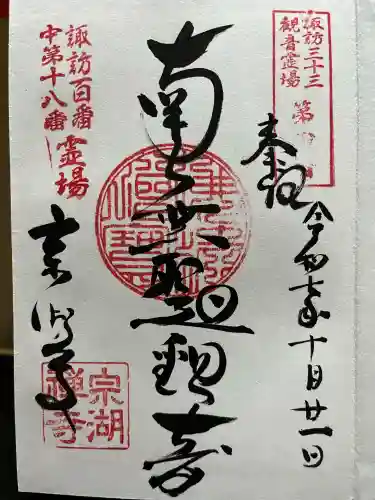 諏訪三十三
観音霊場
第
奉拝
令和
十月廿一日
南無聖観音
諏訪百番霊場
中第十八番
宗湖寺
宗湖
禅寺